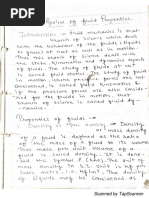 Review of fluid Properties
Introduction → fluid mechanics is that
branch of science which deals
with the behaviour of the fluids (liquids
or gases) at rest as well as in motion.
Thus this branch of science deals with
the static, kinematics and dynamic aspects
of fluids. The study of fluids at rest
is called fluid statics. The study of fluids
in motion, where pressure forces are not
considered, is called fluid kinematics
and if the pressure forces are also considered
for the fluids in motion, that
branch of science is called fluid dynamics.
Properties of fluids →
Density or Mass Density → Density
or mass density
of a fluid is defined as the ratio
of the mass of a fluid to its volume.
Thus mass per unit volume of a
fluid is called density. It is denoted
the symbol ρ (rho). The unit of mass
density in S.I. unit is kg per
cubic metre, i.e. kg/m³. The density
of liquids may be considered as
Scanned by TapScanner